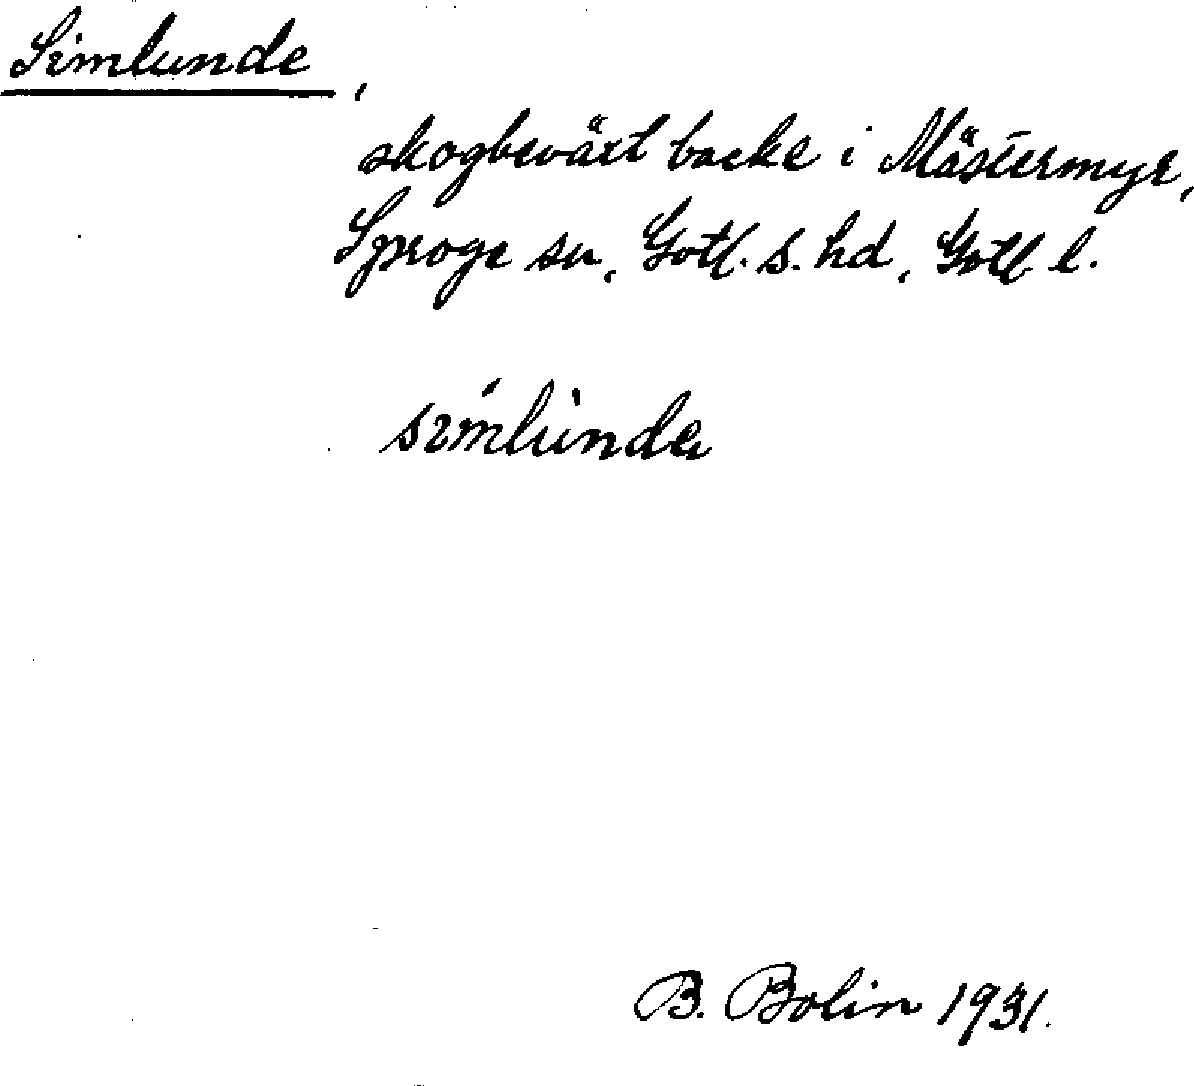 Simlunde,
skogbeväxt backe i Mästermyr,
Sproge sn, Gotl. s. hd, Gotl. l.
B. Bolin 1931.